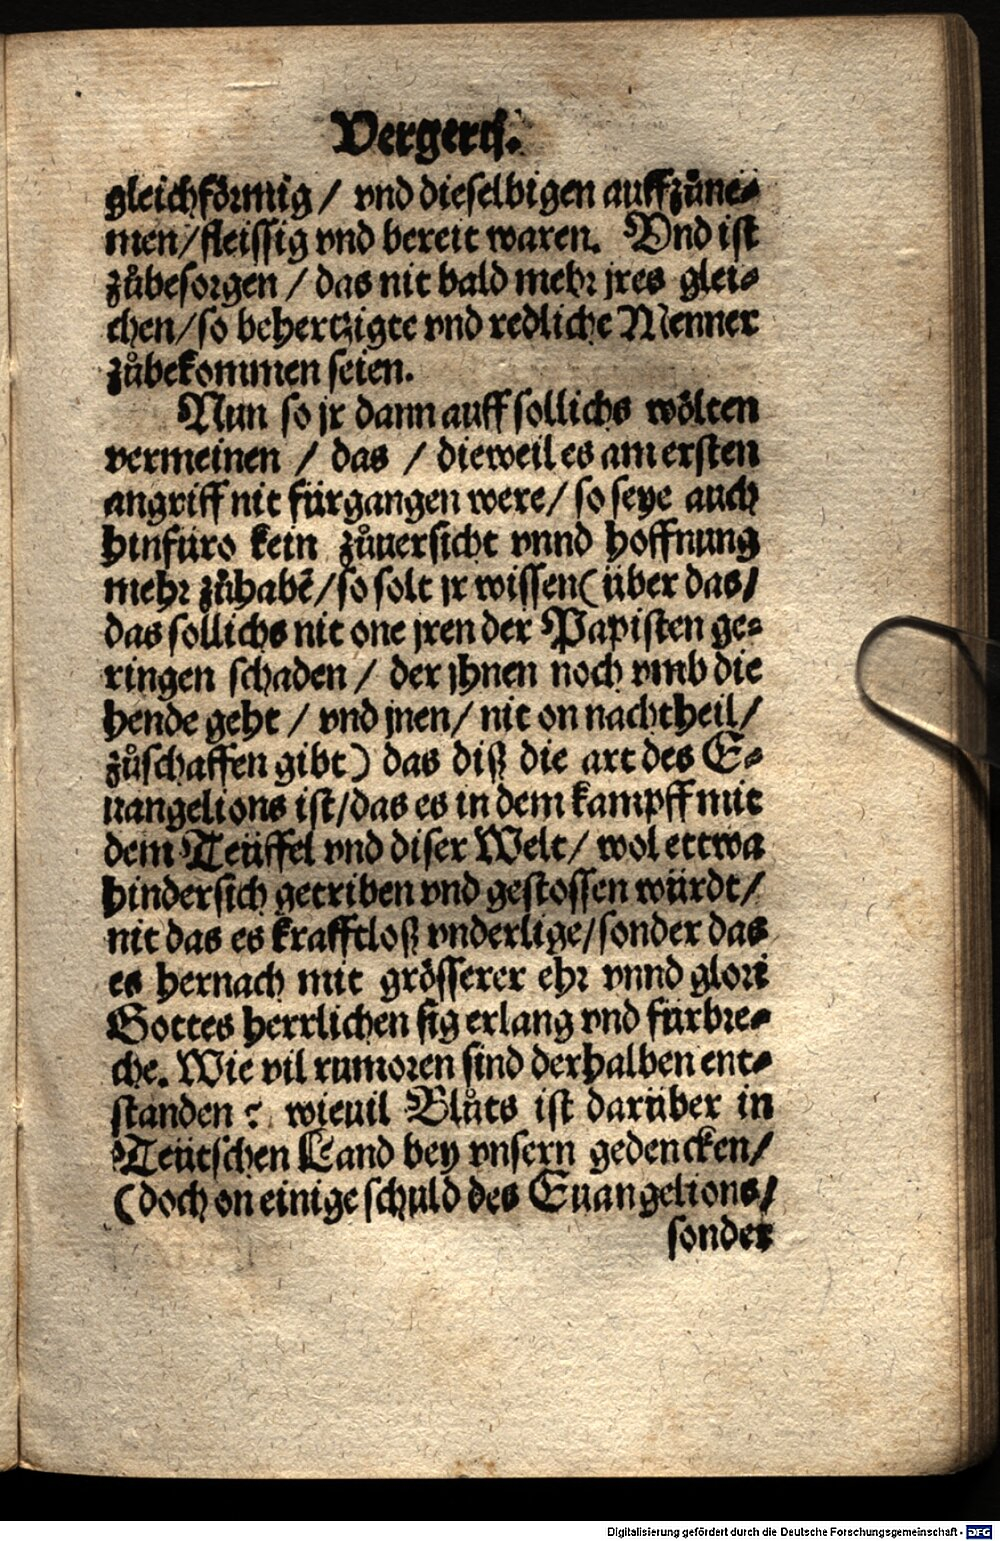 Vergerij.
gleichförmig / vnd dieselbigen auffzůne⸗
men/fleissig vnd bereit waren. Vnd ist
zůbesorgen / das nit bald mehr jres glei⸗
chen/so behertzigte vnd redliche Menner
zůbekommen seien.
Nun so jr dann auff sollichs wölten
vermeinen / das / dieweil es am ersten
angriff nit fürgangen were/ so seye auch
hinfüro kein zůuersicht vnnd hoffnung
mehr zůhabẽ/so solt jr wissen(über das/
das sollichs nit one jren der Papisten ge⸗
ringen schaden / der jhnen noch vmb die
hende geht / vnd jnen/ nit on nachtheil/
zůschaffen gibt) das diß die art des E⸗
uangelions ist/das es in dem kampff mit
dem Teüffel vnd diser Welt/ wol ettwa
hindersich getriben vnd gestossen würdt/
nit das es krafftloß vnderlige/sonder das
es hernach mit grösserer ehr vnnd glori
Gottes herrlichen sig erlang vnd fürbre⸗
che. Wie vil rumoren sind derhalben ent⸗
standen? wieuil Blůts ist darüber in
Teütschen Land bey vnsern gedencken/
(doch on einige schuld des Euangelions/
sonder
Digitalisierung gefördert durch die Deutsche Forschungsgemeinschaft - DFG